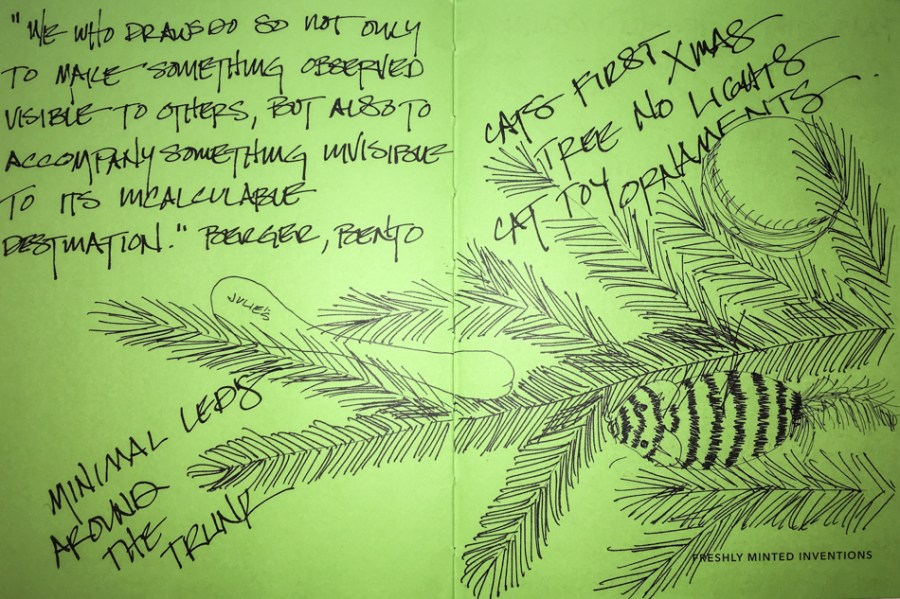 "WE WHO DRAW DO SO NOT ONLY
TO MAKE SOMETHING OBSERVED
VISIBLE TO OTHERS, BUT ALSO TO
ACCOMPANY SOMETHING INVISIBLE
TO ITS INCALCULABLE
DESTINATION." BERGER, BENTO
CATS FIRST XMAS
TREE NO LIGHTS
CAT TOY ORNAMENTS
JULIE'S
MINIMAL LEDS
AROUND
THE TRUNK
FRESHLY MINTED INVENTIONS